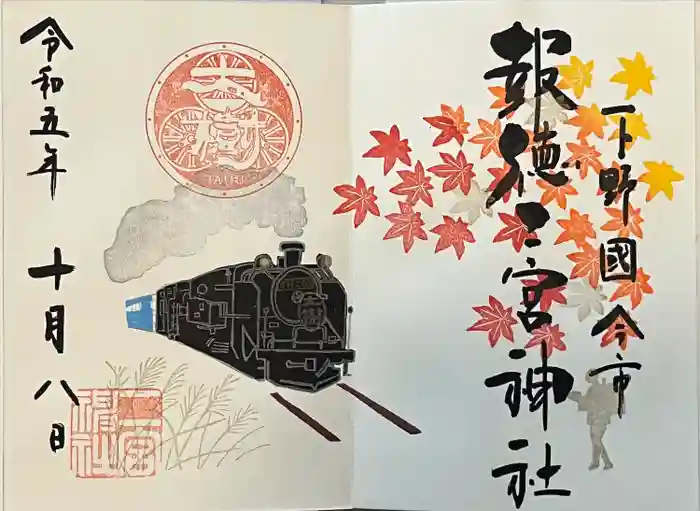 下野國今市
報徳二宮神社
大樹
TAIJU
令和五年 十月八日
二宮神社